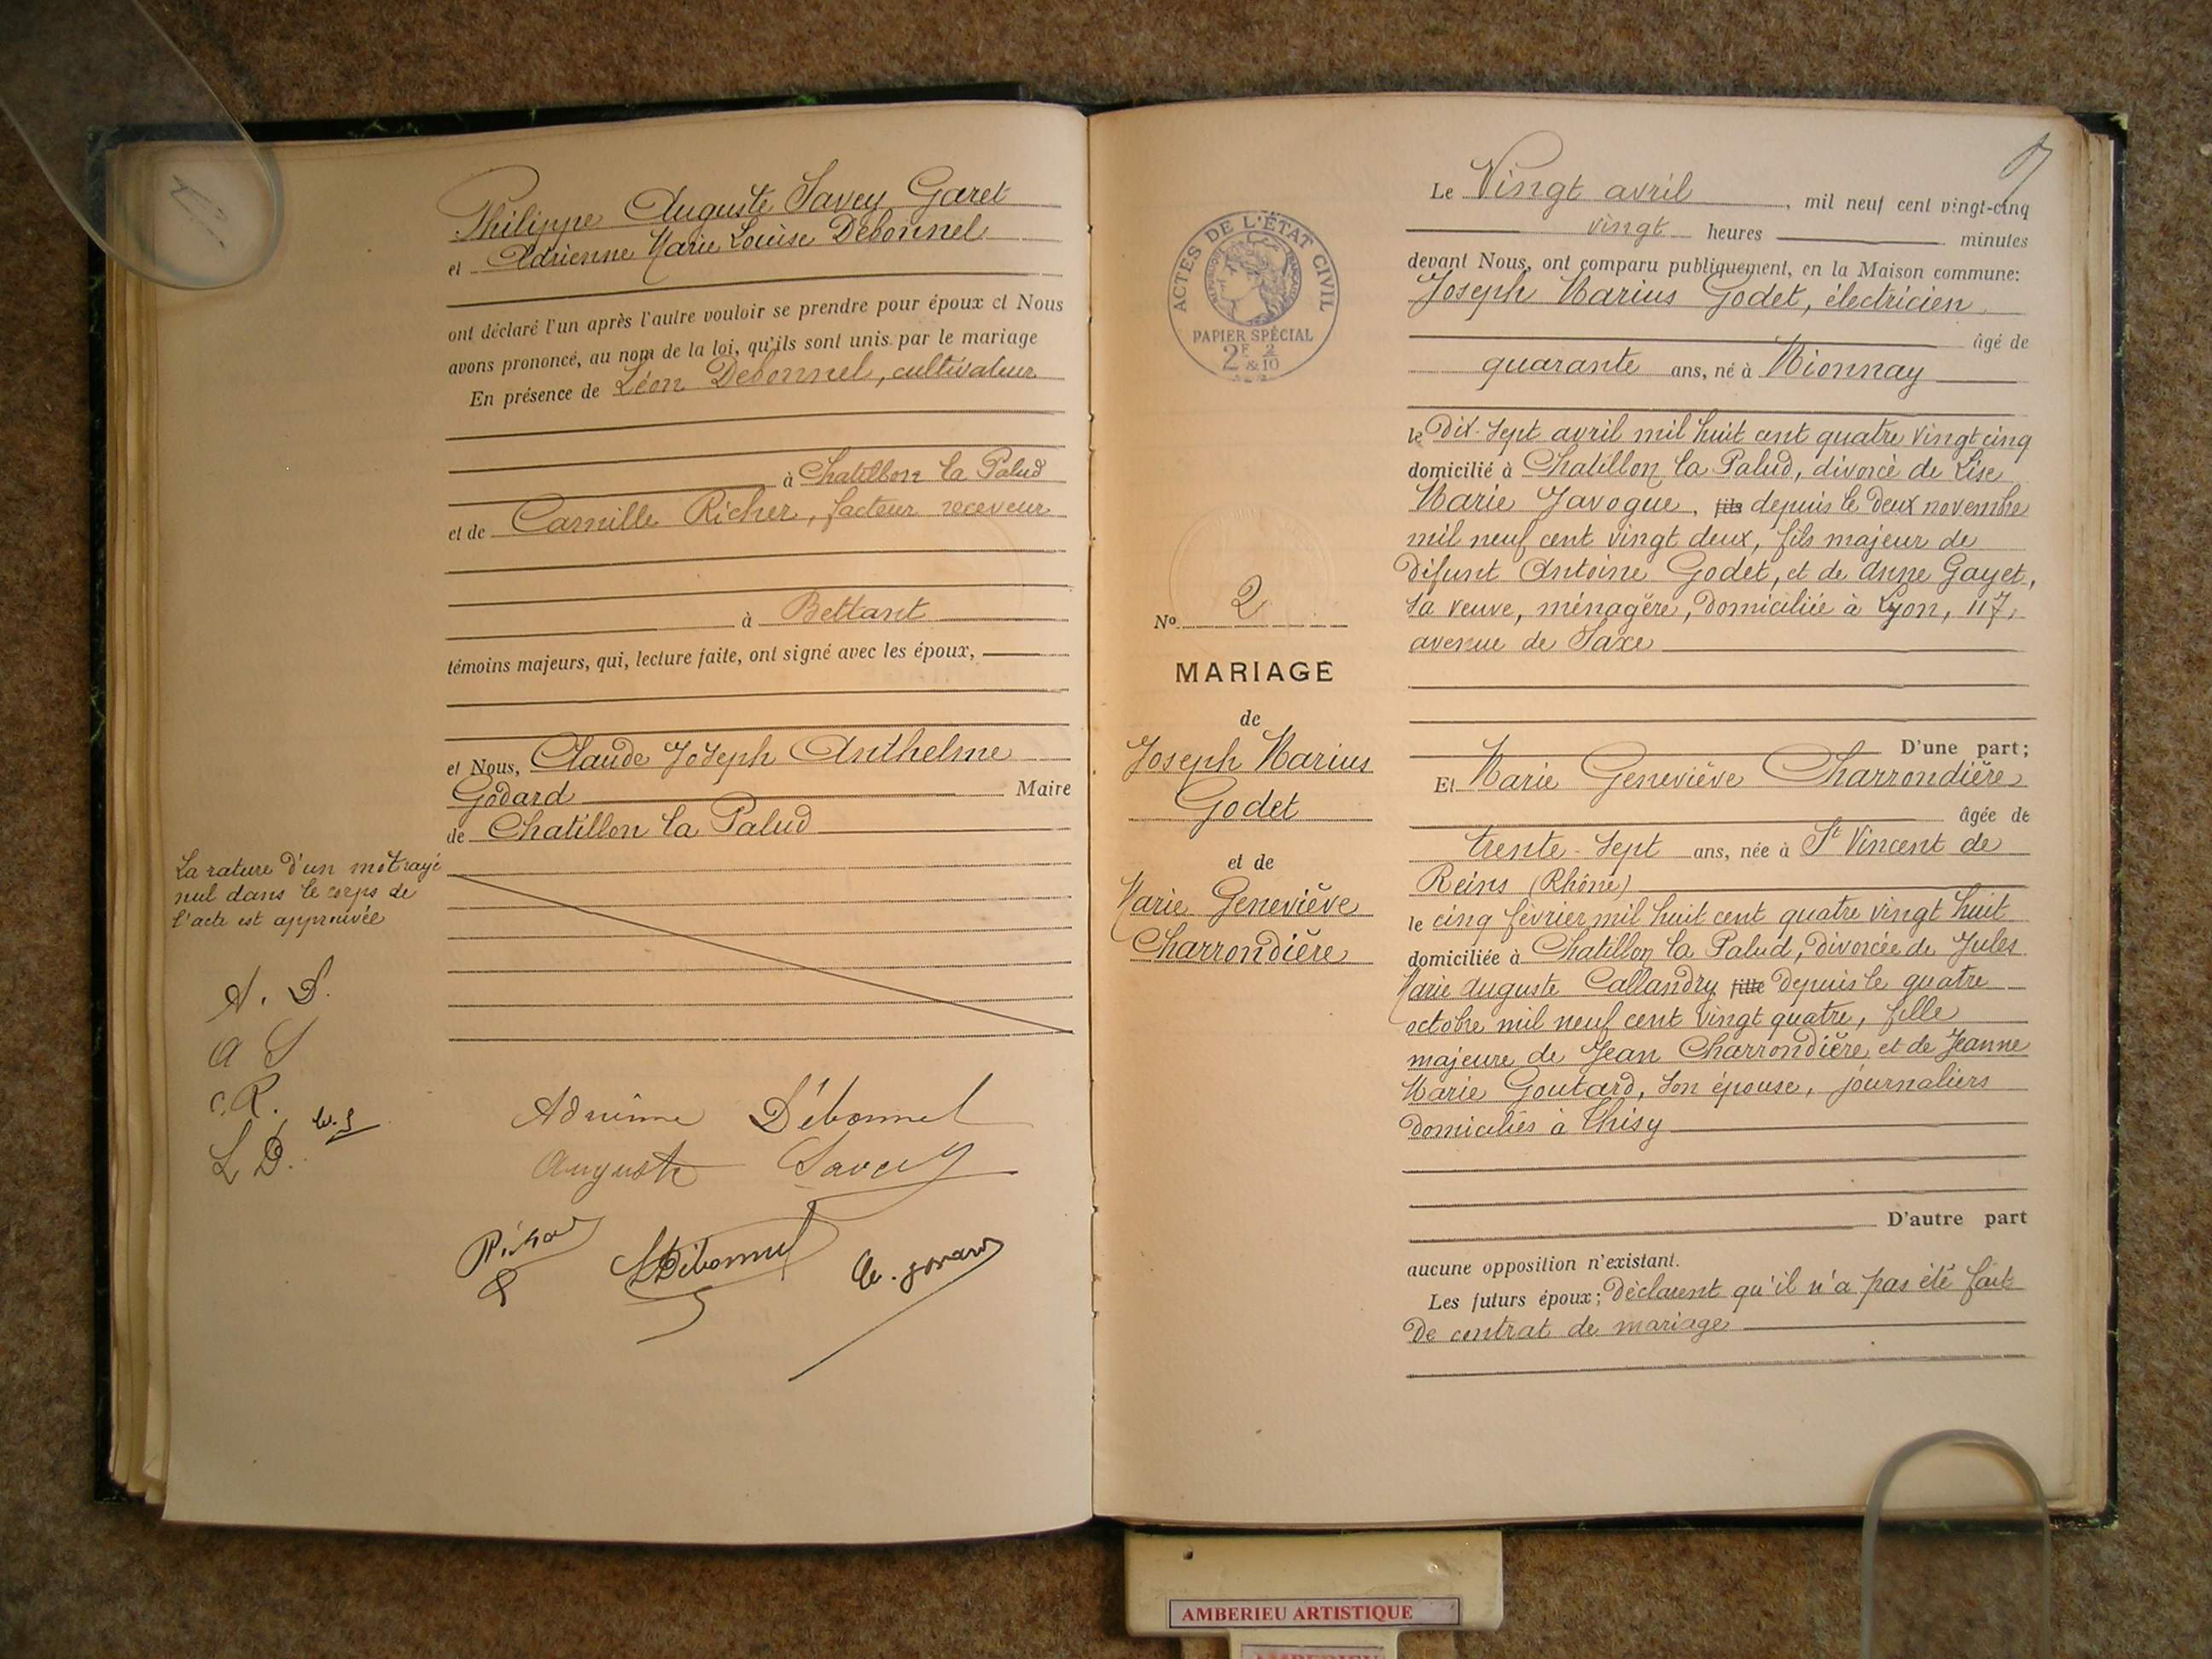 Philippe Auguste Savey Garet
et Adrienne Marie Louise Débonnel
ont déclaré l'un après l'autre vouloir se prendre pour époux et Nous
avons prononcé, au nom de la loi, qu'ils sont unis par le mariage
En présence de Léon Debonnel, cultivateur
à Chatillon la Palud
et de Camille Richer, facteur receveur
à Bettant
témoins majeurs, qui, lecture faite, ont signé avec les époux,
et Nous, Claude Joseph Anthelme
Godard Maire
de Chatillon la Palud
La rature d'un mot rayé
nul dans le corps de
l'acte est approuvée
A. D.
A S
C. R.
L D.
Adrienne Débonnel
Auguste Savey
L Débonnel
ACTES DE L'ÉTAT CIVIL
RÉPUBLIQUE FRANÇAISE
PAPIER SPÉCIAL
2F 2
& 10
No 2
MARIAGE
de
Joseph Marius
Godet
et de
Marie Geneviève
Charrondière
Le Vingt avril, mil neuf cent vingt-cinq
vingt heures minutes
devant Nous, ont comparu publiquement, en la Maison commune:
Joseph Marius Godet, électricien
âgé de
quarante ans, né à Mionnay
le Dix-sept avril mil huit cent quatre vingt cinq
domicilié à Chatillon la Palud, divorcé de Lise
Marie Javogue, fils depuis le deux novembre
mil neuf cent vingt deux, fils majeur de
défunt Antoine Godet, et de Anne Gayet,
sa veuve, ménagère, domiciliée à Lyon, 117,
avenue de Saxe
D'une part;
Et Marie Geneviève Charrondière
âgée de
trente-sept ans, née à St Vincent de
Reins (Rhône)
le cinq février mil huit cent quatre vingt huit
domiciliée à Chatillon la Palud, divorcée de Jules
Marie Auguste Callandry fille depuis le quatre
octobre mil neuf cent vingt quatre, fille
majeure de Jean Charrondière et de Jeanne
Marie Goutard, son épouse, journaliers
domiciliés à Thisy
D'autre part
aucune opposition n'existant.
Les futurs époux; déclarent qu'il n'a pas été fait
de contrat de mariage
AMBERIEU ARTISTIQUE
AMBERIEU